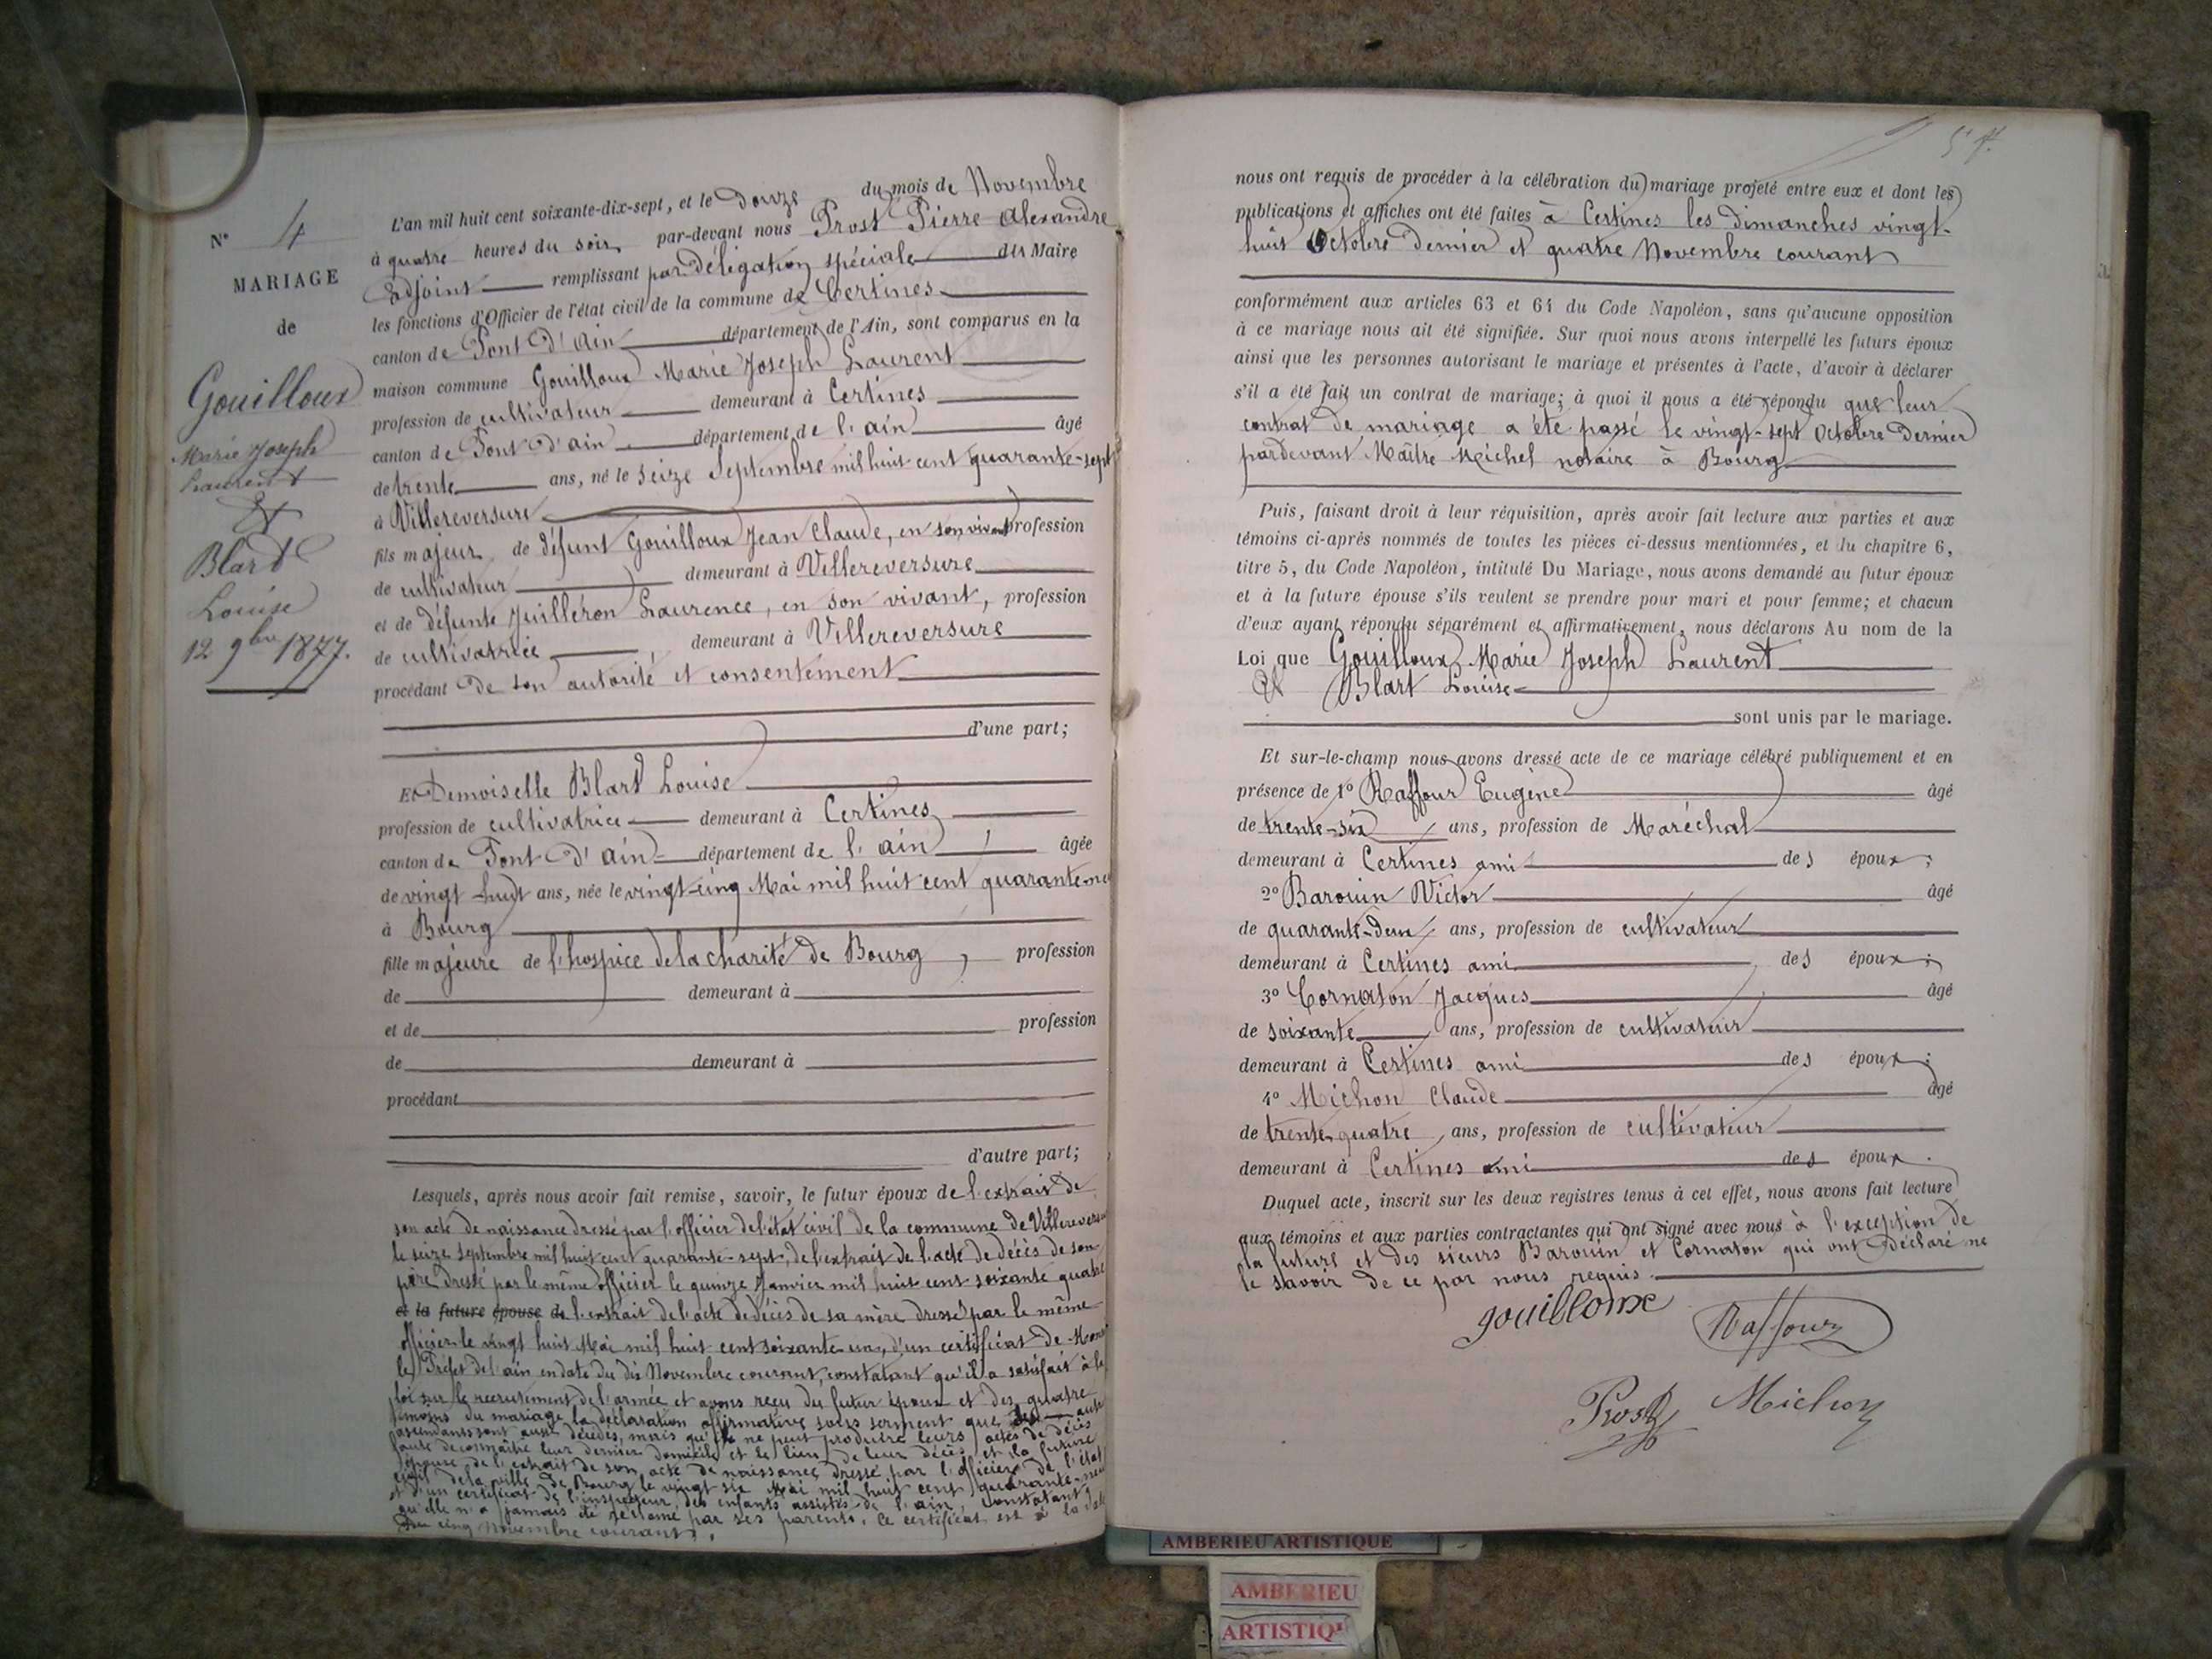 N° 4
MARIAGE
de
Gouilloux
Marie Joseph
Laurent
Et
Blart
Louise
12 9bre 1877.
L'an mil huit cent soixante-dix-sept, et le Douze du mois de Novembre
à quatre heures du soir par-devant nous Prost Pierre Alexandre
adjoint remplissant par délégation spéciale du Maire
les fonctions d'Officier de l'état civil de la commune de Certines
canton de Pont D'ain département de l'Ain, sont comparus en la
maison commune Gouilloux Marie Joseph Laurent
profession de cultivateur demeurant à Certines
canton de Pont D'ain département de l'ain âgé
de trente ans, né le seize Septembre mil huit cent quarante-sept
à Villereversure
fils majeur de défunt Gouilloux Jean Claude, en son vivant profession
de cultivateur demeurant à Villereversure
et de défunte Juilléron Laurence, en son vivant, profession
de cultivatrice, demeurant à Villereversure
procédant De son autorité et consentement
d'une part;
Et Demoiselle Blart Louise
profession de cultivatrice demeurant à Certines
canton de Pont D'ain département de l'ain âgée
de vingt-huit ans, née le vingt-cinq Mai mil huit cent quarante-neuf
à Bourg
fille majeure de l'hospice de la charité de Bourg, profession
de demeurant à
et de profession
de demeurant à
procédant
d'autre part;
Lesquels, après nous avoir fait remise, savoir, le futur époux de l'extrait de
son acte de naissance dressé par l'officier de l'état civil de la commune de Villereversure
le seize Septembre mil huit cent quarante-sept, de l'extrait de l'acte de décès de son
père dressé par le même officier le quinze Janvier mil huit cent soixante quatre
et la future épouse de l'extrait de l'acte de décès de sa mère dressé par le même
officier le vingt huit Mai mil huit cent soixante un, d'un certificat de Mons
le Préfet de l'ain en date du dix Novembre courant, constatant qu'il a satisfait à la
loi sur le recrutement de l'armée et avons reçu du futur époux et des quatre
témoins du mariage la déclaration affirmative sous serment que
ascendants sont aussi décédés, mais qu'il ne peut produire leurs actes de décès
faute de connaître leur dernier domicile et le lieu de leur décès, et la future
épouse de l'extrait de son acte de naissance dressé par l'officier de l'état
civil de la ville de Bourg le vingt six Mai mil huit cent quarante-neuf
et d'un certificat de l'inspecteur des enfants assistés de l'ain, constatant
qu'elle n'a jamais été réclamé par ses parents. Ce certificat est à la date
du cinq Novembre courant.
nous ont requis de procéder à la célébration du mariage projeté entre eux et dont les
publications et affiches ont été faites à Certines les dimanches vingt-
huit Octobre Dernier et quatre Novembre courant
conformément aux articles 63 et 64 du Code Napoléon, sans qu'aucune opposition
à ce mariage nous ait été signifiée. Sur quoi nous avons interpellé les futurs époux
ainsi que les personnes autorisant le mariage et présentes à l'acte, d'avoir à déclarer
s'il a été fait un contrat de mariage; à quoi il nous a été répondu que leur
contrat de mariage a été passé le vingt-sept Octobre Dernier
pardevant Maître Michel notaire à Bourg
Puis, faisant droit à leur réquisition, après avoir fait lecture aux parties et aux
témoins ci-après nommés de toutes les pièces ci-dessus mentionnées, et du chapitre 6,
titre 5, du Code Napoléon, intitulé Du Mariage, nous avons demandé au futur époux
et à la future épouse s'ils veulent se prendre pour mari et pour femme; et chacun
d'eux ayant répondu séparément et affirmativement, nous déclarons Au nom de la
Loi que Gouilloux Marie Joseph Laurent
Et Blart Louise
sont unis par le mariage.
Et sur-le-champ nous avons dressé acte de ce mariage célébré publiquement et en
présence de 1° Raffour Eugène âgé
de trente-six ans, profession de Maréchal
demeurant à Certines ami des époux;
2° Barouin Victor âgé
de quarante-deux ans, profession de cultivateur
demeurant à Certines ami des époux;
3° Cornaton Jacques âgé
de soixante ans, profession de cultivateur
demeurant à Certines ami des époux;
4° Michon Claude âgé
de trente quatre ans, profession de cultivateur
demeurant à Certines ami des époux.
Duquel acte, inscrit sur les deux registres tenus à cet effet, nous avons fait lecture
aux témoins et aux parties contractantes qui ont signé avec nous à l'exception de
la future et des sieurs Barouin et Cornaton qui ont déclaré ne
le savoir de ce par nous requis.
gouilloux Raffour
Prost Michon
AMBERIEU ARTISTIQUE
AMBERIEU
ARTISTIQU